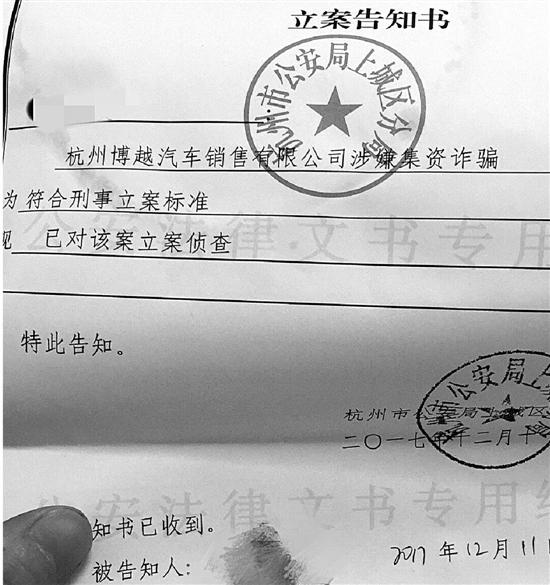 立案告知书
杭州市公安局上城区分局
杭州博越汽车销售有限公司涉嫌集资诈骗
为 符合刑事立案标准
现 已对该案立案侦查
公安法律文书专用
特此告知。
公安局上城区
杭州市公安局上城区
二〇一七年十二月十
公安法律文书专用纸
知书已收到。
2017年12月11日
被告知人: